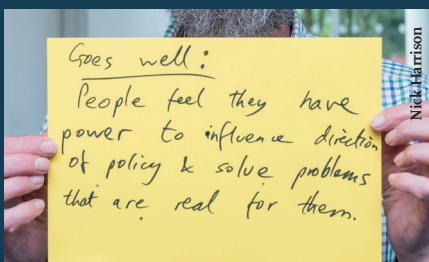 Goes well:
People feel they have
power to influence direction
of policy & solve problems
that are real for them.
Nick Harrison